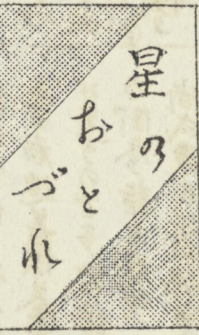 星の
おと
づれ